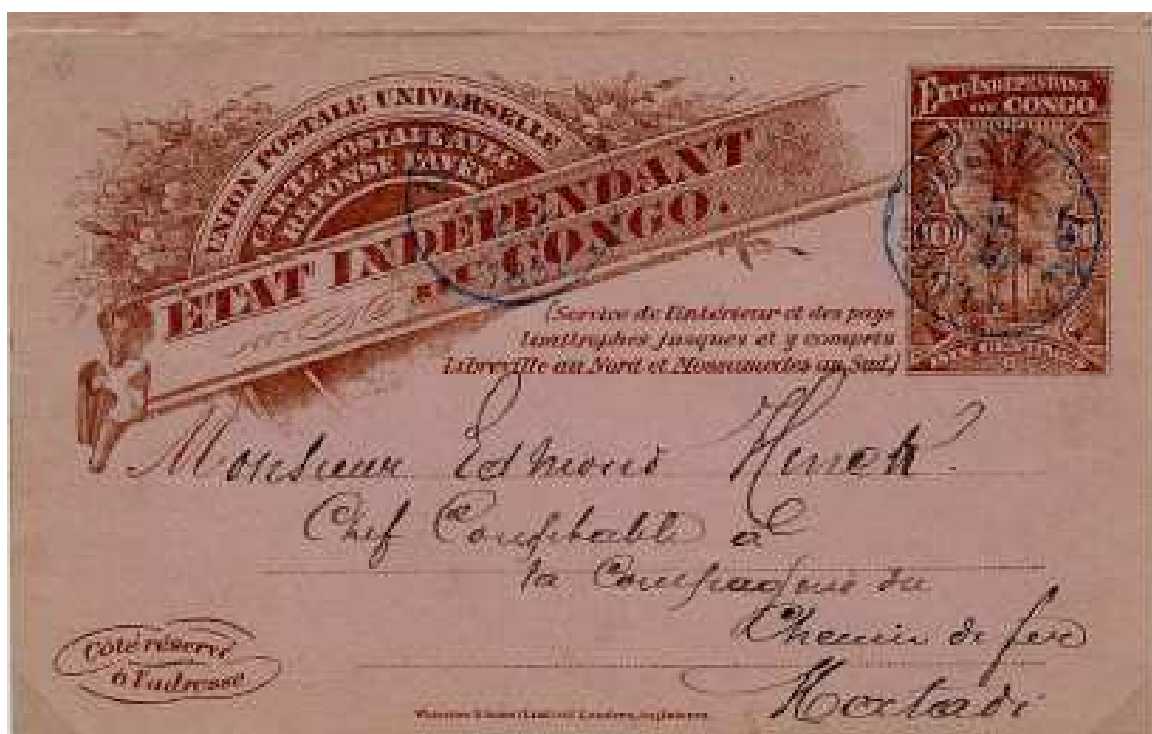 UNION POSTALE UNIVERSELLE
CARTE POSTALE AVEC
RÉPONSE PAYÉE
ETAT INDÉPENDANT
DU CONGO.
ETAT INDEPENDANT
DU CONGO
10
(Service de l'intérieur et des pays
limitrophes jusques et y compris
Libreville au Nord et Mossamedes au Sud)
Monsieur Edmond
Chef Comptable à
la Compagnie du
Chemin de fer
Matadi
Côté réservé
à l'adresse
Waterlow & Sons Limited, Londres,